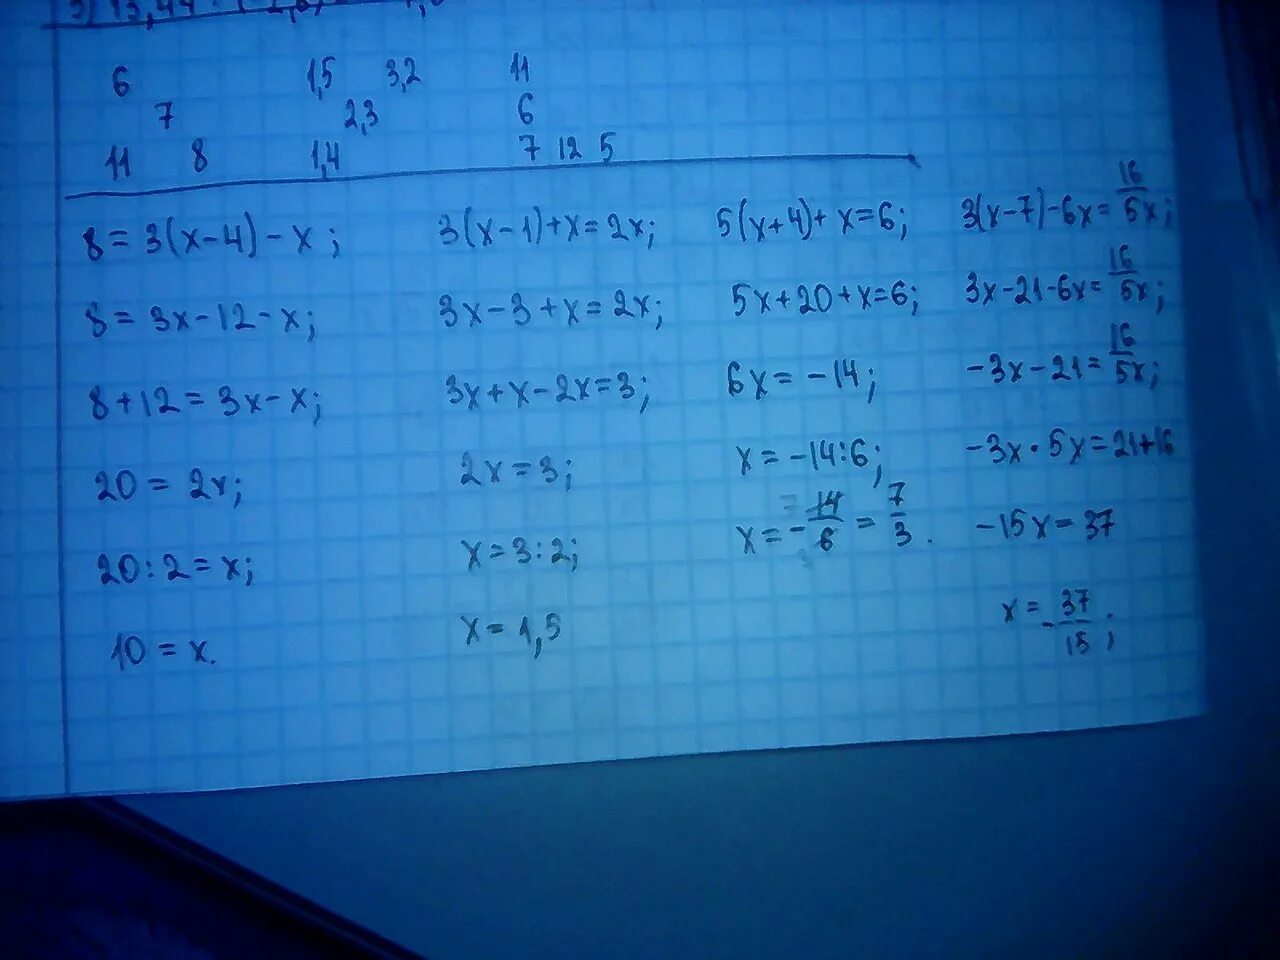 6 1,5 3,2 11
7 2,3 6
11 8 1,4 7 12 5
8 = 3(x-4) - x;
8 = 3x-12-x;
8+12 = 3x-x;
20 = 2x;
20:2 = x;
10 = x.
3(x-1)+x=2x;
3x-3+x=2x;
3x+x-2x=3;
2x=3;
x=3:2;
x=1,5
5(x+4)+x=6;
5x+20+x=6;
6x=-14;
x=-14:6;
x=-14/6 = 7/3.
3(x-7)-6x=16/5x;
3x-21-6x=16/5x;
-3x-21=16/5x;
-3x·5x=21+16
-15x=37
x=-37/15;